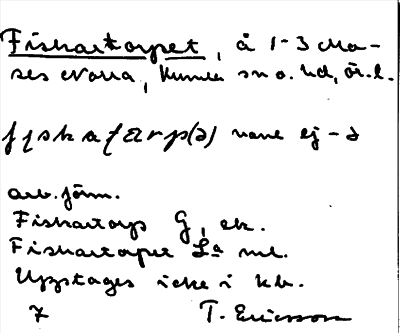 Fiskartorpet, å 1-3 Mo-
ses Norra, Kumla sn o. hd, Ör. l.
fiskaṭarp(ə) vane ej -ə
arb. förm.
Fiskartorp G, ek.
Fiskartorpet La ml.
Upptages icke i kb.
7 T. Ericsson